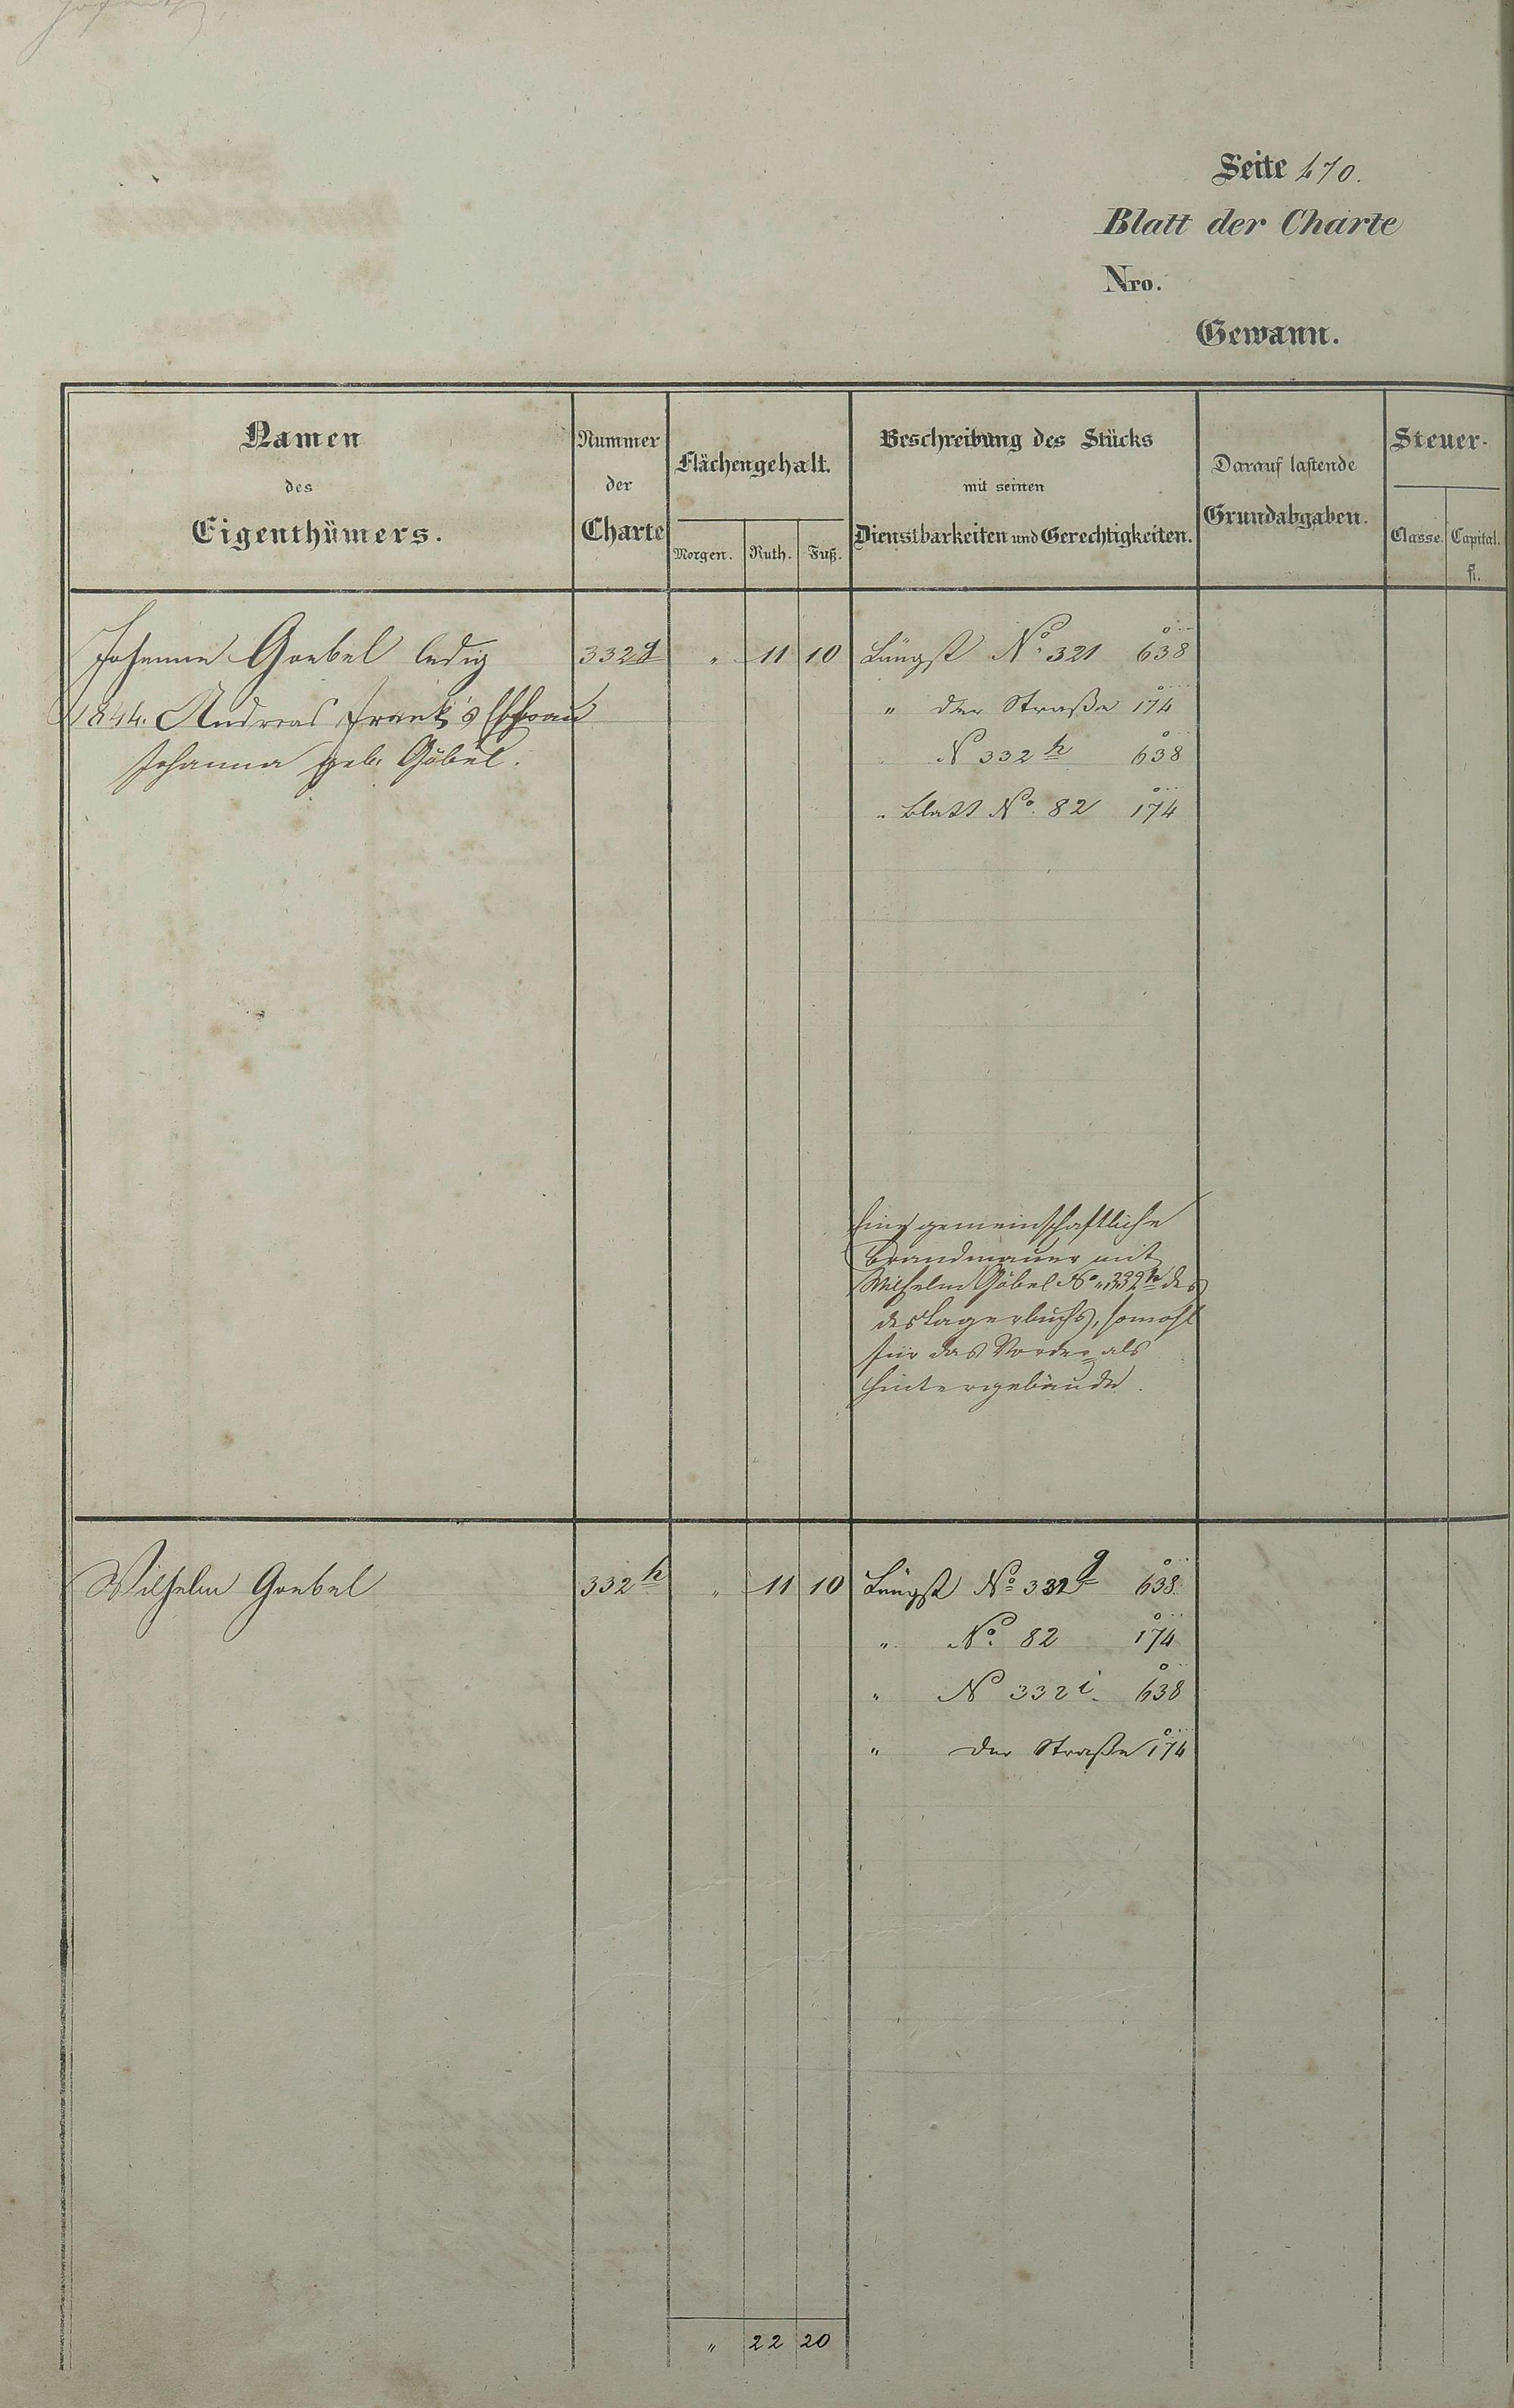 Seite 470.
Blatt der Charte
Nro.
Gewann.
Namen des Eigenthümers.
Nummer der Charte
Flächengehalt.
Morgen. Ruth. Fuß.
Beschreibung des Stücks mit seinen Dienstbarkeiten und Gerechtigkeiten.
Darauf lastende Grundabgaben.
Steuer-
Classe. Capital.
fl.
Johanna Goebel ledig 332g " 11 10 Längst No. 321 638
1844. Andreas Frank's Ehefrau " der Straße 174
Johanna geb. Göbel. N 332h 638
" Blatt No. 82 174
Eine gemeinschaftliche
Brandmauer mit
Wilhelm Göbel No. 332h des
des Lagerbuchs, sowohl
für das Vorder= als
Hintergebäude.
Wilhelm Goebel 332h " 11 10 Längst No 332g 638
" No. 82 174
" N 332i. 638
" der Straße 174
" 22 20